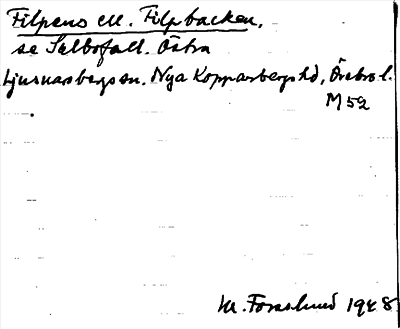 Filpens ell. Filpbacken,
se Salbofall. Östra
Ljusnarsbergs sn. Nya Kopparbergs hd, Örebro l.
M 52
M. Forslund 1948